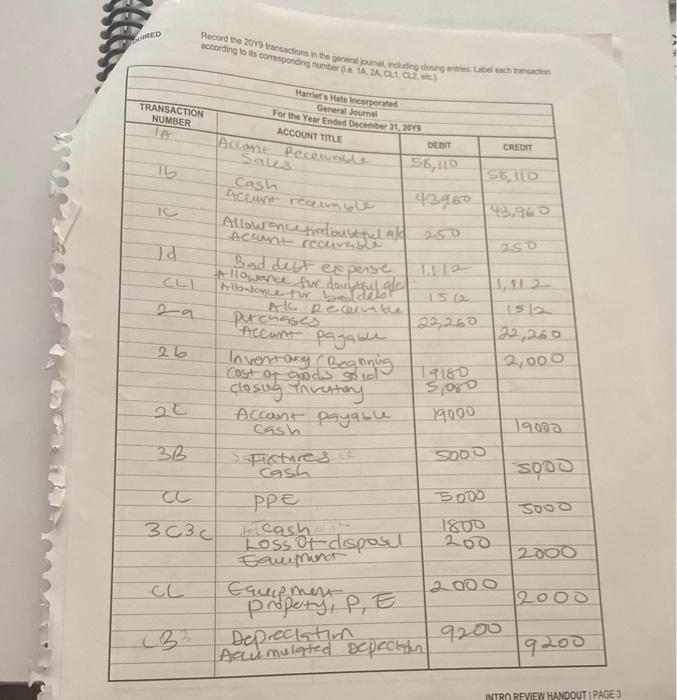 Record the 20Y9 transactions in the general journal, including closing entries. Label each transaction
according to its corresponding number (i.e. 1A, 2A, CL1, CL2, etc.)
Harriet's Hats Incorporated
General Journal
For the Year Ended December 31, 20Y9
TRANSACTION NUMBER ACCOUNT TITLE DEBIT CREDIT
1A Accont Receivable 58,110
Sales 58,110
1b Cash 43960
Accunt receivable 43,960
1C Allowrence doubtful a/c 250
Accunt receivable 250
1d Bad debt expense 1,112
Allowence fur doubtful a/c 1,112
CL1 Allowance fur bad debt 1512
A/c Receivable 1512
2a purchases 22,260
Accunt payable 22,260
2b Inventory (Beginning 2,000
Cost of goods sold 19180
Closing Inventory 5,080
2C Accant payable 19000
Cash 19000
3B Fixtures 5000
Cash 5000
CL PPE 5000 5000
3C3c Cash 1800
Loss of disposl 200
Equipment 2000
CL Equipment 2000
Property, P, E 2000
Depreciation 9200
Accumulated 9200
INTRO REVIEW HANDOUT | PAGE 3